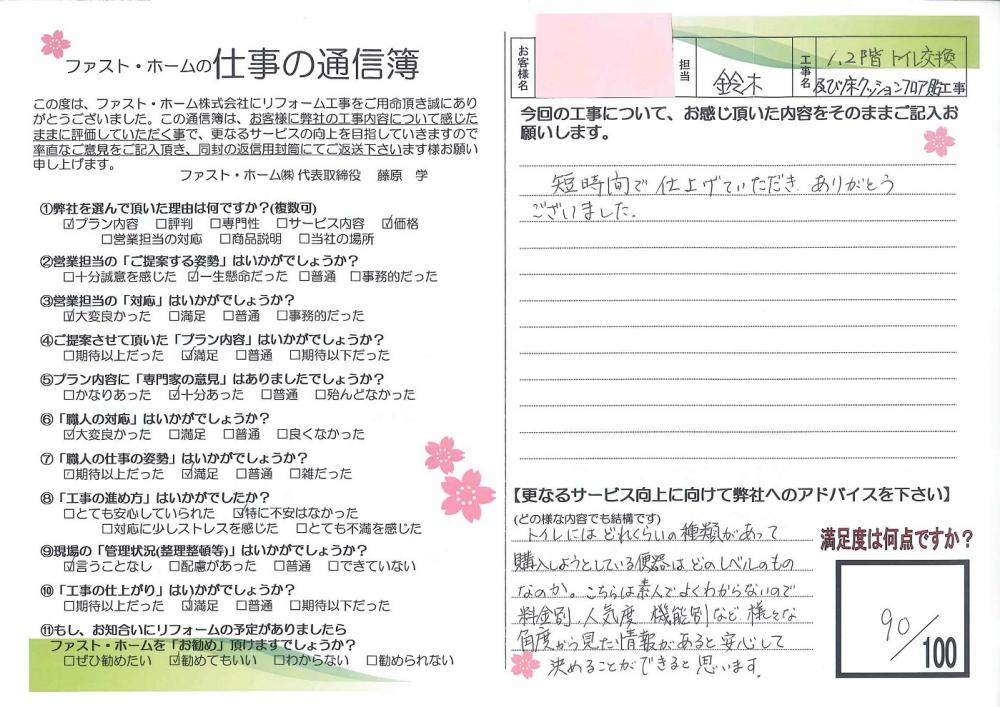 ファスト・ホームの仕事の通信簿
この度は、ファスト・ホーム株式会社にリフォーム工事をご用命頂き誠にあり
がとうございました。この通信簿は、お客様に弊社の工事内容について感じた
ままに評価していただく事で、更なるサービスの向上を目指していきますので
率直なご意見をご記入頂き、同封の返信用封筒にてご返送下さいます様お願い
申し上げます。
ファスト・ホーム㈱ 代表取締役 藤原 学
①弊社を選んで頂いた理由は何ですか?(複数可)
☑プラン内容 □評判 □専門性 □サービス内容 ☑価格
□営業担当の対応 □商品説明 □当社の場所
②営業担当の「ご提案する姿勢」はいかがでしょうか?
□十分誠意を感じた ☑一生懸命だった □普通 □事務的だった
③営業担当の「対応」はいかがでしょうか?
☑大変良かった □満足 □普通 □事務的だった
④ご提案させて頂いた「プラン内容」はいかがでしょうか?
□期待以上だった ☑満足 □普通 □期待以下だった
⑤プラン内容に「専門家の意見」はありましたでしょうか?
□かなりあった ☑十分あった □普通 □殆んどなかった
⑥「職人の対応」はいかがでしょうか?
☑大変良かった □満足 □普通 □良くなかった
⑦「職人の仕事の姿勢」はいかがでしょうか?
□期待以上だった ☑満足 □普通 □雑だった
⑧「工事の進め方」はいかがでしたか?
□とても安心していられた ☑特に不安はなかった
□対応に少しストレスを感じた □とても不満を感じた
⑨現場の「管理状況(整理整頓等)」はいかがでしょうか?
☑言うことなし □配慮があった □普通 □できていない
⑩「工事の仕上がり」はいかがでしょうか?
□期待以上だった ☑満足 □普通 □期待以下だった
⑪もし、お知合いにリフォームの予定がありましたら
ファスト・ホームを「お勧め」頂けますでしょうか?
□ぜひ勧めたい ☑勧めてもいい □わからない □勧められない
お客様名
担当 鈴木
工事名 1,2階 トイレ交換
及び床クッションフロア貼工事
今回の工事について、お感じ頂いた内容をそのままご記入お
願いします。
短時間で仕上げていただき ありがとう
ございました。
【更なるサービス向上に向けて弊社へのアドバイスを下さい】
(どの様な内容でも結構です)
トイレにはどれくらいの種類があって
購入しようとしている便器は、どのレベルのもの
なのか。こちらは素人でよくわからないので
料金別、人気度 機能別など 様々な
角度から見た情報があると安心して
決めることができると思います。
満足度は何点ですか?
90/100